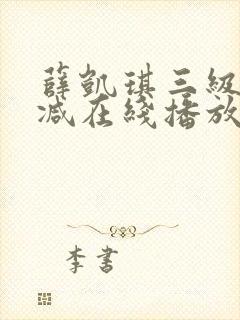 薛凯琪三級
减在綫播放
李書